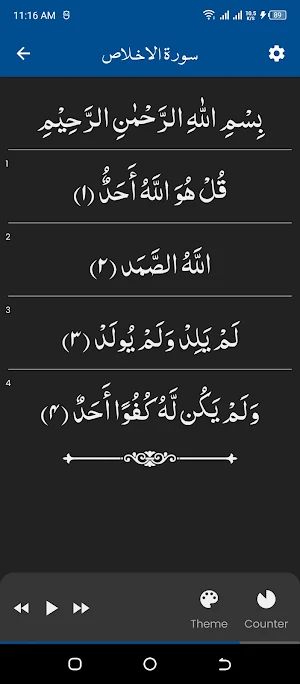 11:16 AM
10.5 K/s 89
سورة الاخلاص
بِسْمِ اللهِ الرَّحْمٰنِ الرَّحِيْمِ
1
قُلْ هُوَ اللَّهُ أَحَدٌ (۱)
2
اللَّهُ الصَّمَد (۲)
3
لَمْ يَلِدْ وَلَمْ يُولَدْ (۳)
4
وَلَمْ يَكُن لَّهُ كُفُوًا أَحَدٌ (۴)
Theme Counter